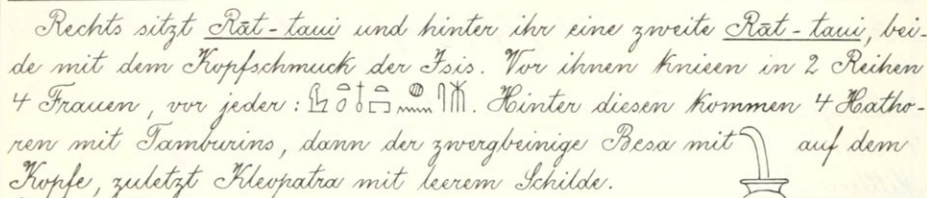 Rechts sitzt Rāt-taui und hinter ihr eine zweite Rāt-taui, bei-
de mit dem Kopfschmuck der Isis. Vor ihnen knieen in 2 Reihen
4 Frauen, vor jeder: . Hinter diesen kommen 4 Hatho-
ren mit Tamburins, dann der zwergbeinige Besa mit auf dem
Kopfe, zuletzt Kleopatra mit leerem Schilde.